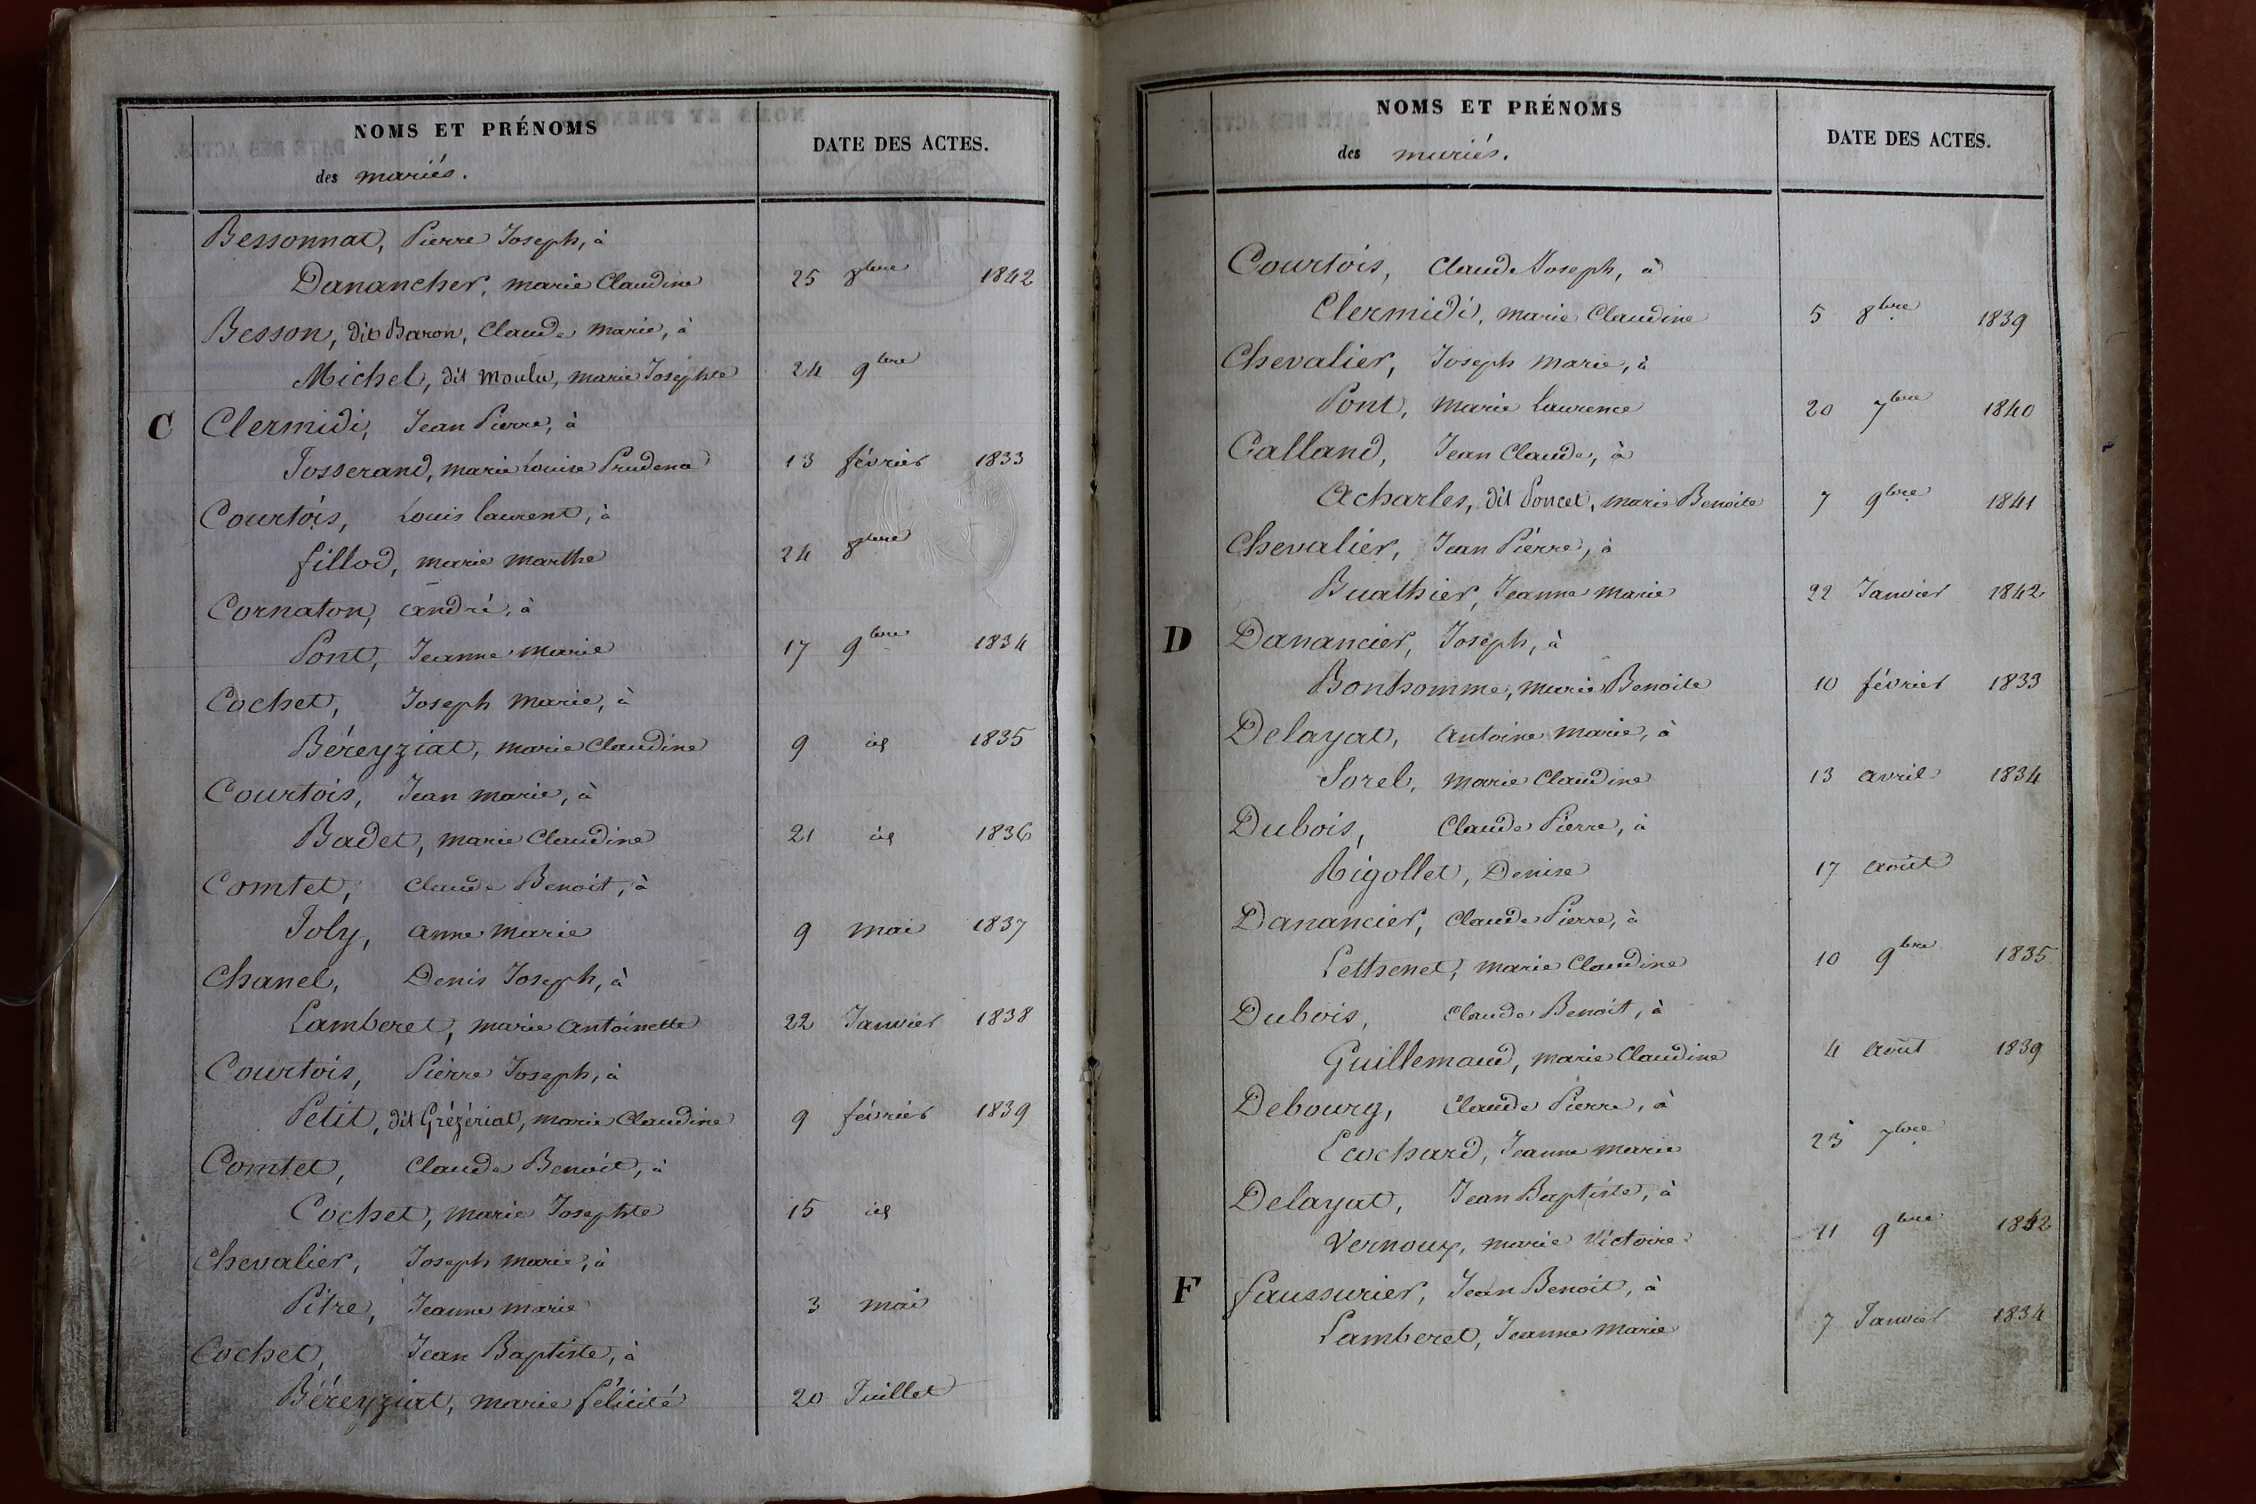 NOMS ET PRÉNOMS
des mariés.
DATE DES ACTES.
Bessonnat, Pierre Joseph, à
Danancher, marie Claudine 25 8bre 1842
Besson, dit Baron, Claude marie, à
Michel, dit Moulu, marie Josephte 24 9bre
C Clermidi, Jean Pierre, à
Josserand, marie Louise Prudence 13 février 1833
Courtois, Louis laurent, à
fillod, marie marthe 24 8bre
Cornaton, andré, à
Pont, Jeanne marie 17 9bre 1834
Cochet, Joseph marie, à
Béreyziat, marie Claudine 9 id 1835
Courtois, Jean marie, à
Badet, marie Claudine 21 id 1836
Comtet, Claude Benoit, à
Joly, anne marie 9 mai 1837
Chanel, Denis Joseph, à
Lamberet, marie antoinette 22 Janvier 1838
Courtois, Pierre Joseph, à
Petit, dit Grézériat, marie Claudine 9 février 1839
Comtet, Claude Benoit, à
Cochet, marie Josephte 15 id
Chevalier, Joseph marie, à
Pitre, Jeanne marie 3 mai
Cochet, Jean Baptiste, à
Béreyziat, marie félicité 20 Juillet
NOMS ET PRÉNOMS
des mariés.
DATE DES ACTES.
Courtois, Claude Joseph, à
Clermidi, marie Claudine 5 8bre 1839
Chevalier, Joseph marie, à
Pont, marie laurence 20 7bre 1840
Calland, Jean Claude, à
Acharles, dit Poncet, marie Benoite 7 9bre 1841
Chevalier, Jean Pierre, à
Buathier, Jeanne marie 22 Janvier 1842
D Danancier, Joseph, à
Bonhomme, marie Benoite 10 février 1833
Delayat, antoine marie, à
Sorel, marie Claudine 13 avril 1834
Dubois, Claude Pierre, à
Rigollet, Denise 17 août
Danancier, Claude Pierre, à
Pethenet, marie Claudine 10 9bre 1835
Dubois, Claude Benoit, à
Guillemaud, marie Claudine 4 août 1839
Debourg, Claude Pierre, à
Ecochard, Jeanne marie 23 7bre
Delayat, Jean Baptiste, à
Vernoux, marie Victoire 11 9bre 1842
F faussurier, Jean Benoit, à
Lamberet, Jeanne marie 7 Janvier 1834